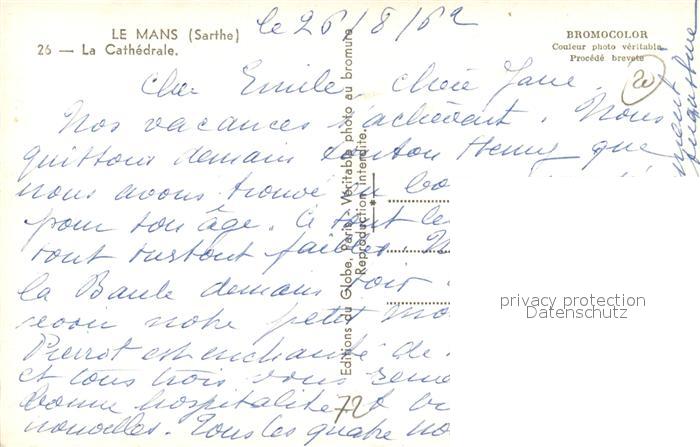 LE MANS (Sarthe)
26 — La Cathédrale.
le 26/8/62
BROMOCOLOR
Couleur photo véritable
Procédé breveté
20
Cher Emile, chère Jane,
Nos vacances s'achèvent. Nous
quittons demain tonton Henry que
nous avons trouvé en bo
pour son âge. Ce sont le
sont surtout faibles. N
la Baule demain soir
revoir notre petit Mo
Pierrot est enchanté de
et tous trois vous reme
bonne hospitalité et vo
nouvelles. Tous les quatre no
72
Editions du Globe, Paris - Véritable photo au bromure
Reproduction interdite.
privacy protection
Datenschutz